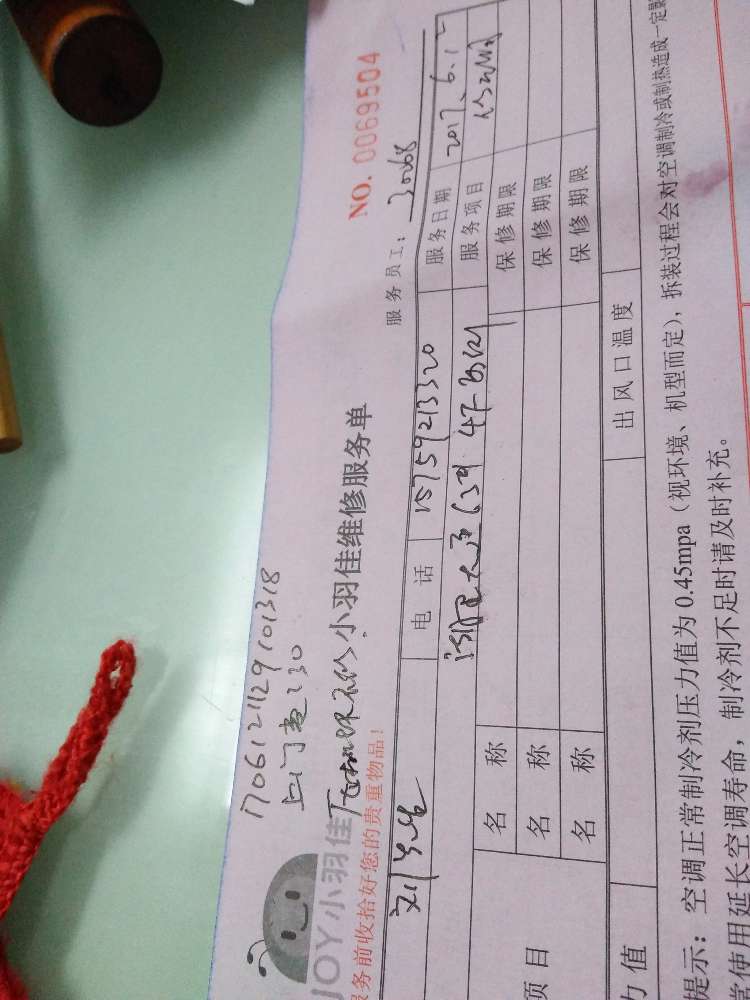 NO. 0069504
1706121129101318
上门费￥30
JOY小羽佳
小羽佳维修服务单
服务员工： 30068
服务前收拾好您的贵重物品！
电 话 15759213320 服务日期 2017.6.12
服务项目
名 称 保修期限
项目 名 称 保修期限
名 称 保修期限
力值 出风口温度
提示：空调正常制冷剂压力值为 0.45mpa（视环境、机型而定），拆装过程会对空调制冷或制热造成一定影
常使用延长空调寿命，制冷剂不足时请及时补充。